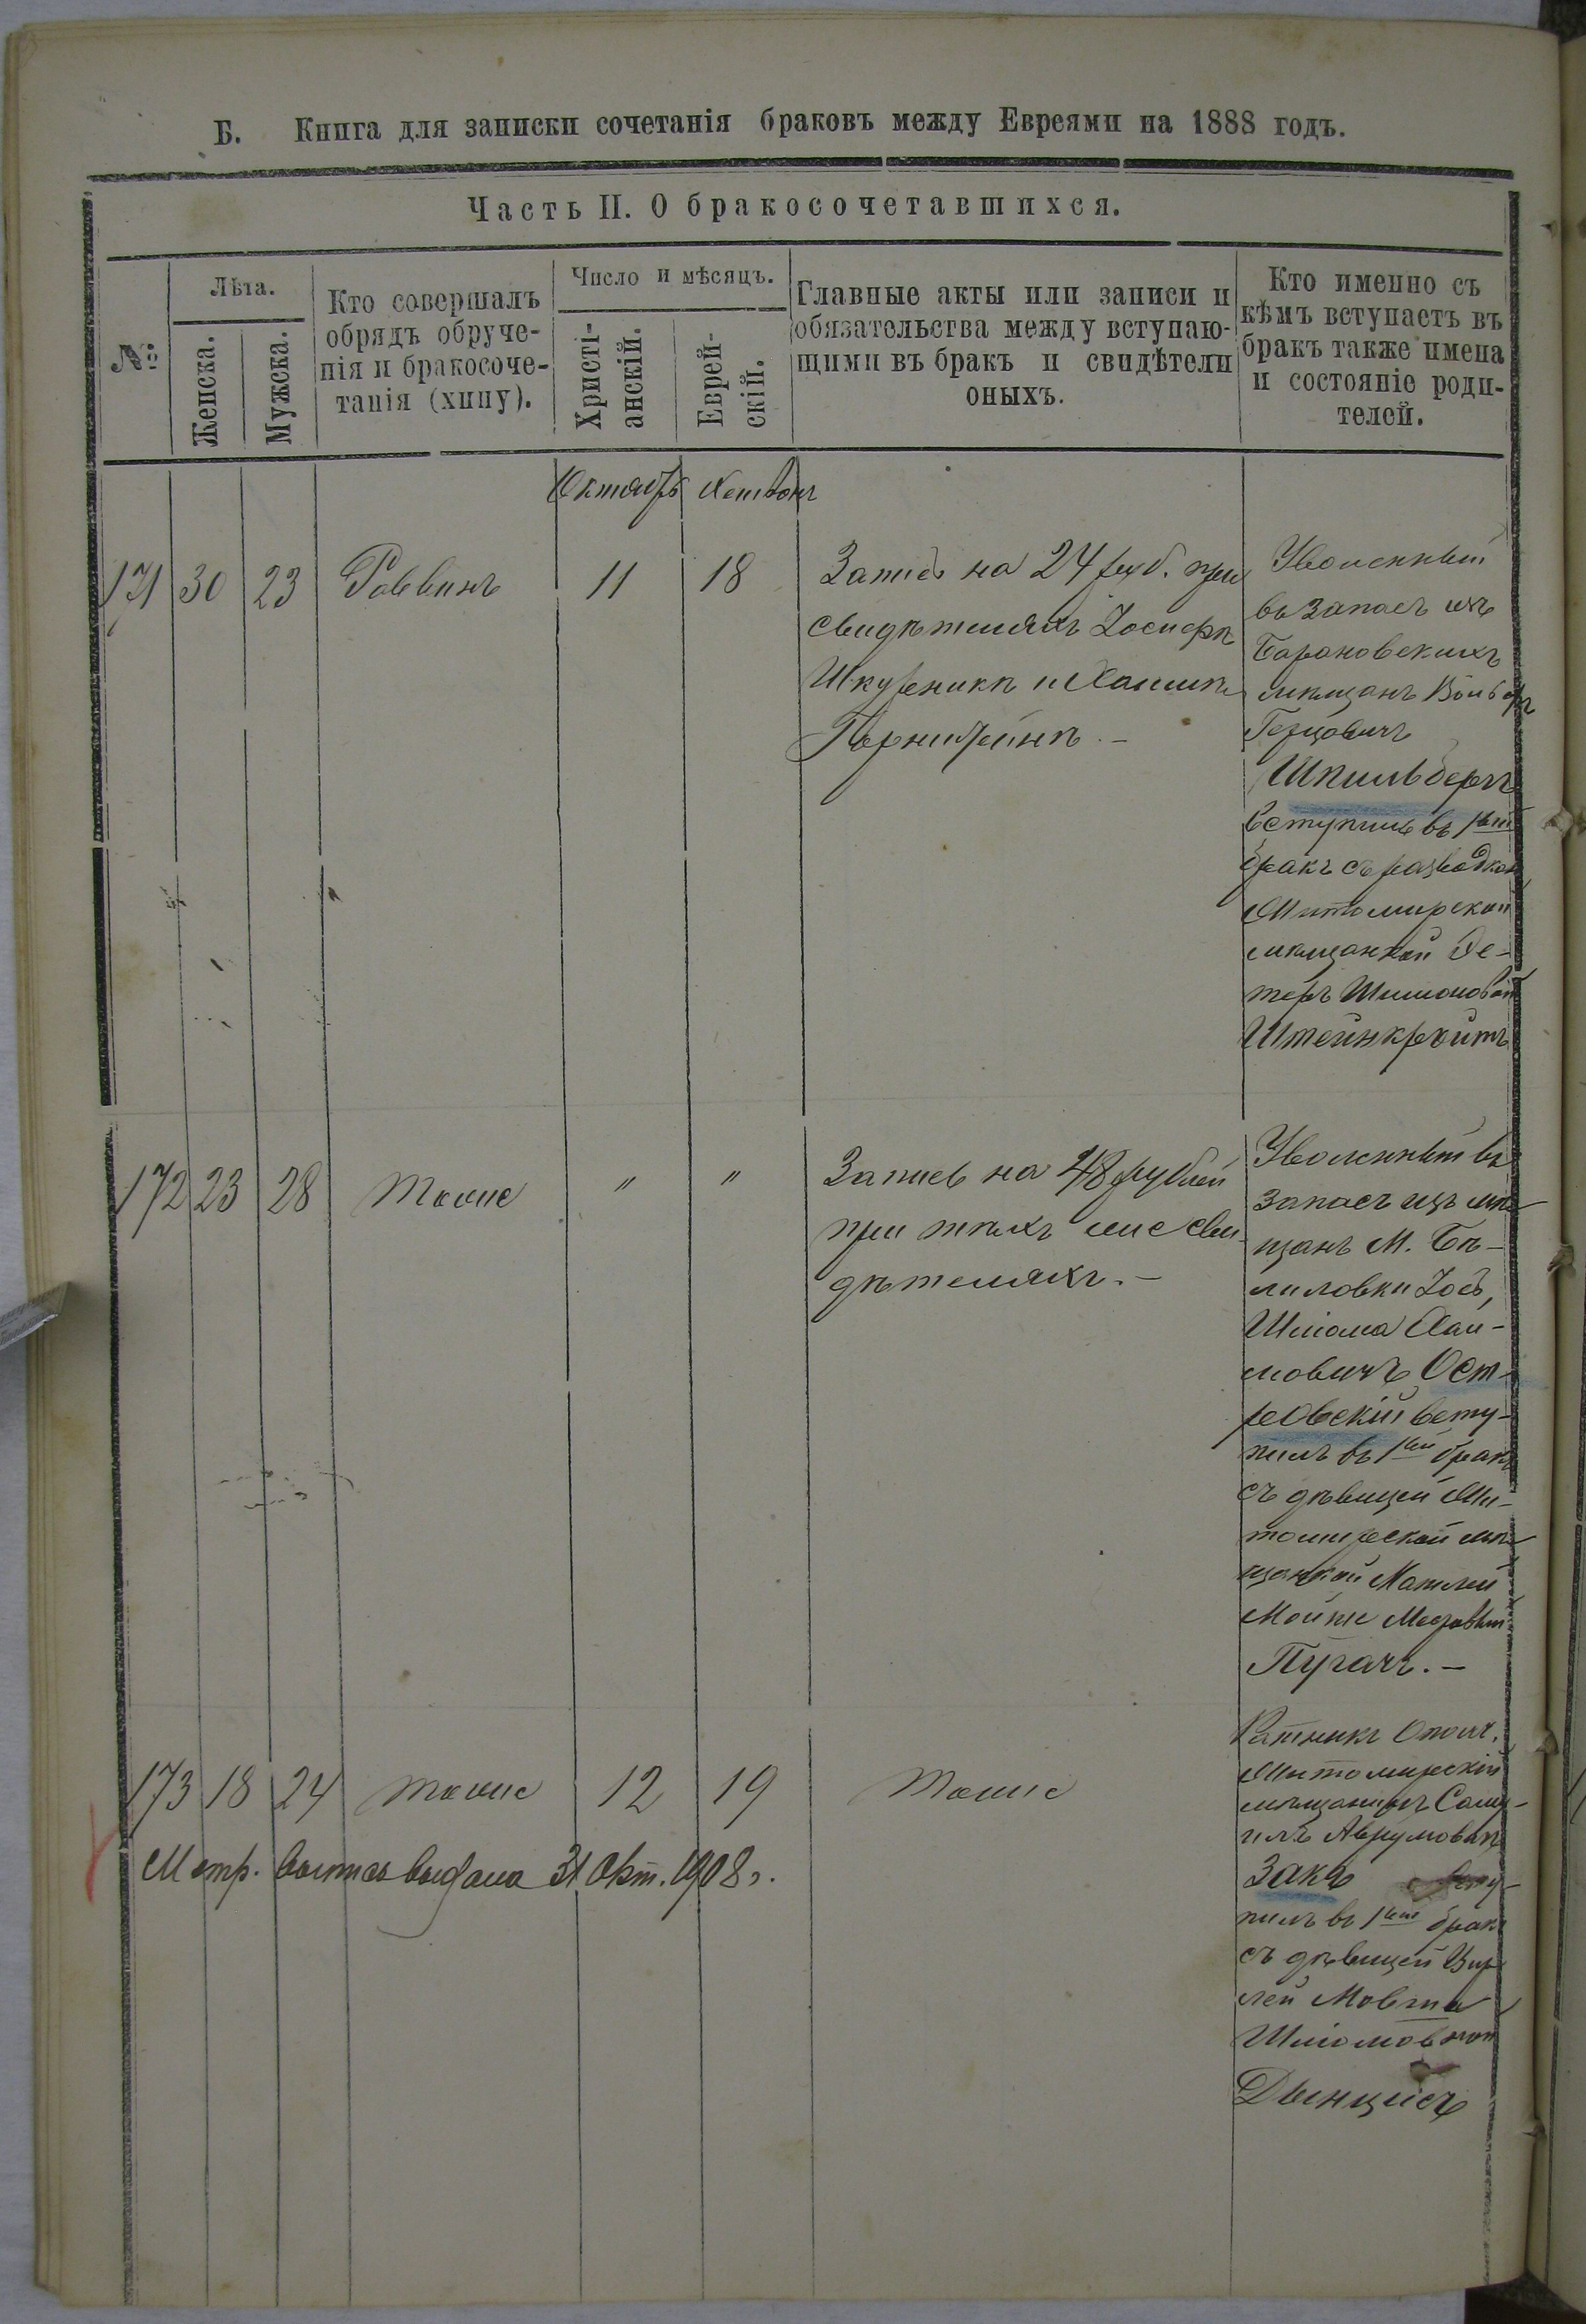 Б. Книга для записки сочетанія браковъ между Евреями на 1888 годъ.
Часть II. О бракосочетавшихся.
№
Лѣта.
Женска.
Мужска.
Кто совершалъ
обрядъ обруче-
нія и бракосоче-
танія (хипу).
Число и мѣсяцъ.
Христі-
анскій.
Еврей-
скій.
Главные акты или записи и
обязательства между вступаю-
щими въ бракъ и свидѣтели
оныхъ.
Кто именно съ
кѣмъ вступаетъ въ
бракъ также имена
и состояніе роди-
телей.
Октябрь Хешвонъ
171 30 23 Раввинъ 11 18
Запись на 24 руб. при
свидѣтеляхъ Іосифѣ
Шкурникѣ и Хаимѣ
Уволенный
въ запасъ изъ
Барановскихъ
мѣщанъ Вольфъ
Герцовичъ
Шпильбергъ
вступилъ въ 1вый
бракъ съ разводкой
Житомирской
мѣщанкой Эс-
теръ Шимоновой
Штейнкройтъ
172 23 28 тоже " "
Запись на 48 рублей
при тѣхъ же сви-
дѣтеляхъ. —
Уволенный въ
запасъ изъ мѣ-
щанъ М. Бѣ-
лиловки Іось,
Шліома Хаи-
мовичъ Ост-
ровскій всту-
пилъ въ 1вый бракъ
съ дѣвицей Жи-
томирской мѣ-
щанкой
Пугачъ. —
173 18 24 тоже 12 19 тоже
Метр. выпись выдана 31 Окт. 1908 г.
Ратникъ Ополч.
Житомирскій
мѣщанинъ Саму-
илъ Аврумовичъ
Закъ всту-
пилъ въ 1вый бракъ
съ дѣвицей
Шліомовной
Дынцисъ